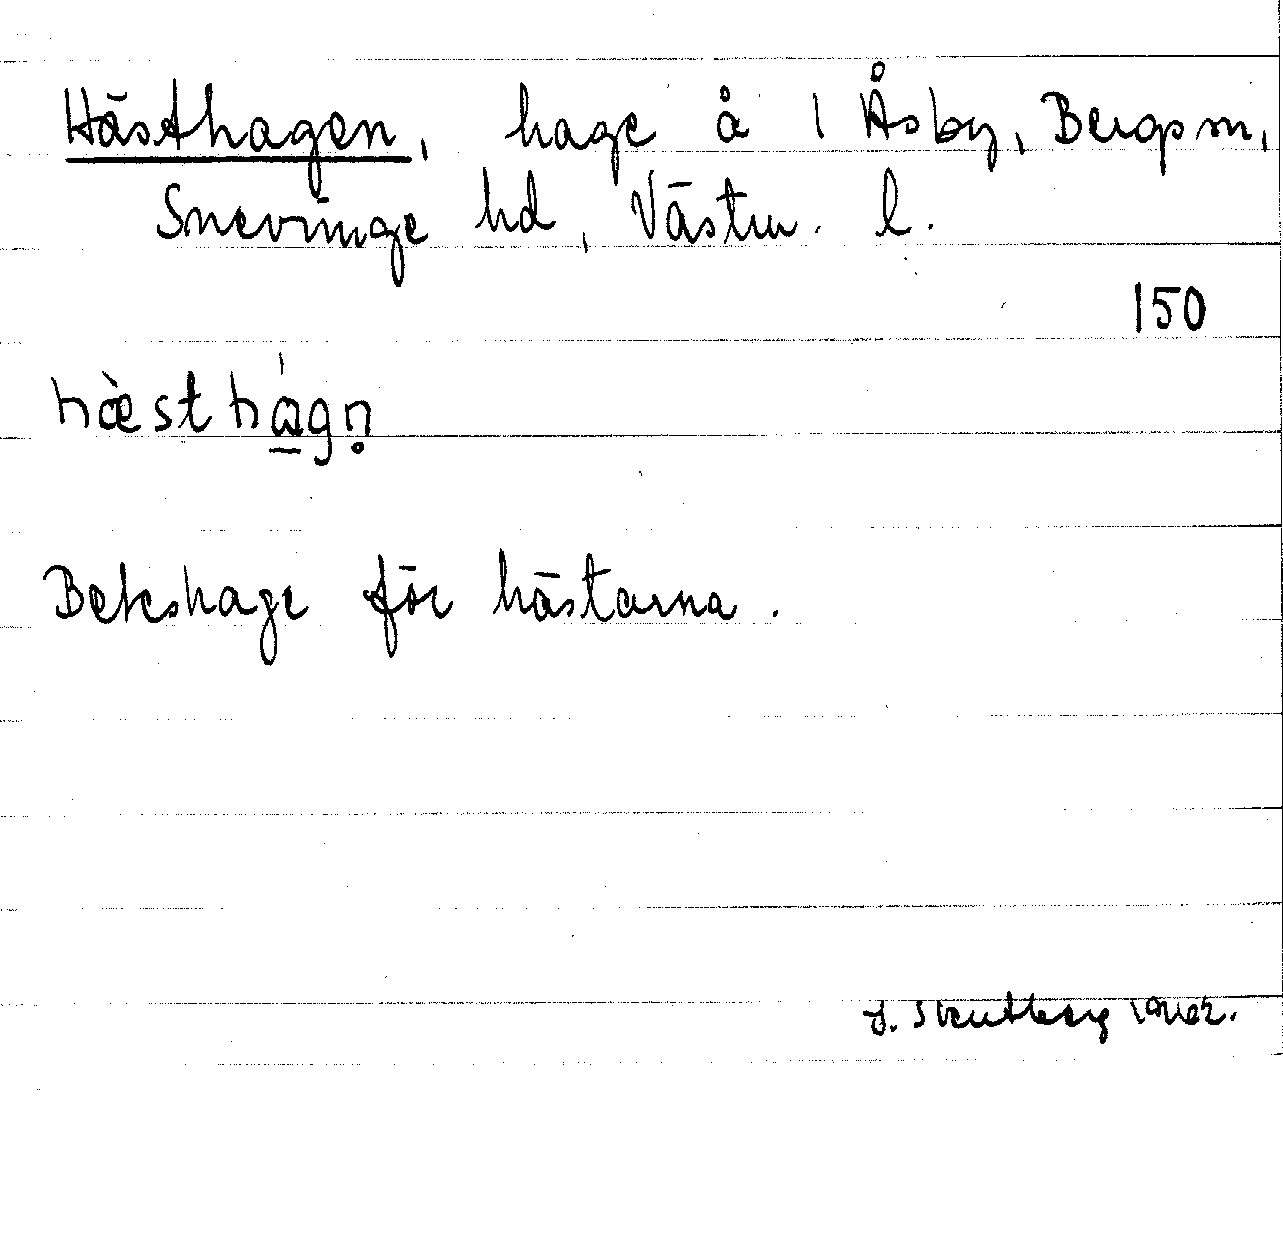 Hästhagen, hage å 1 Åsby, Bergs sn,
Snevringe hd, Västm. l.
150
hæ̀sthág̱n̥
Beteshage för hästarna.